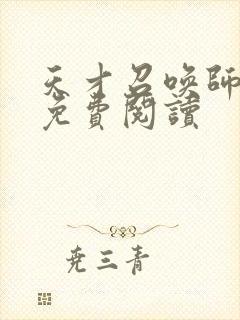 天才召喚師
免費閱讀
尧三青